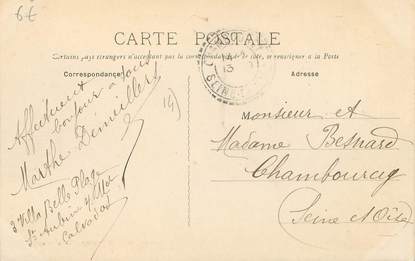 6€
CARTE POSTALE
Certains pays étrangers n'acceptant pas la correspondance de ce côté, se renseigner à la Poste
Correspondance
Adresse
Affectueux
bonjour à tous
Marthe
3 Villa Belle Plage
St Aubin s/Mer
Calvados
Monsieur et
Madame Besnard
Chambourcy
Seine et Oise